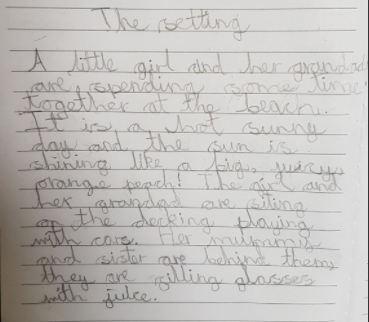 The setting
A little girl and her grandad
are spending some time
together at the beach.
It is a hot sunny
day and the sun is
shining like a big, juicy,
orange peach! The girl and
her grandad are siting
on the decking playing
with cars. Her mummy
and sister are behind them,
they are filling glasses
with juice.